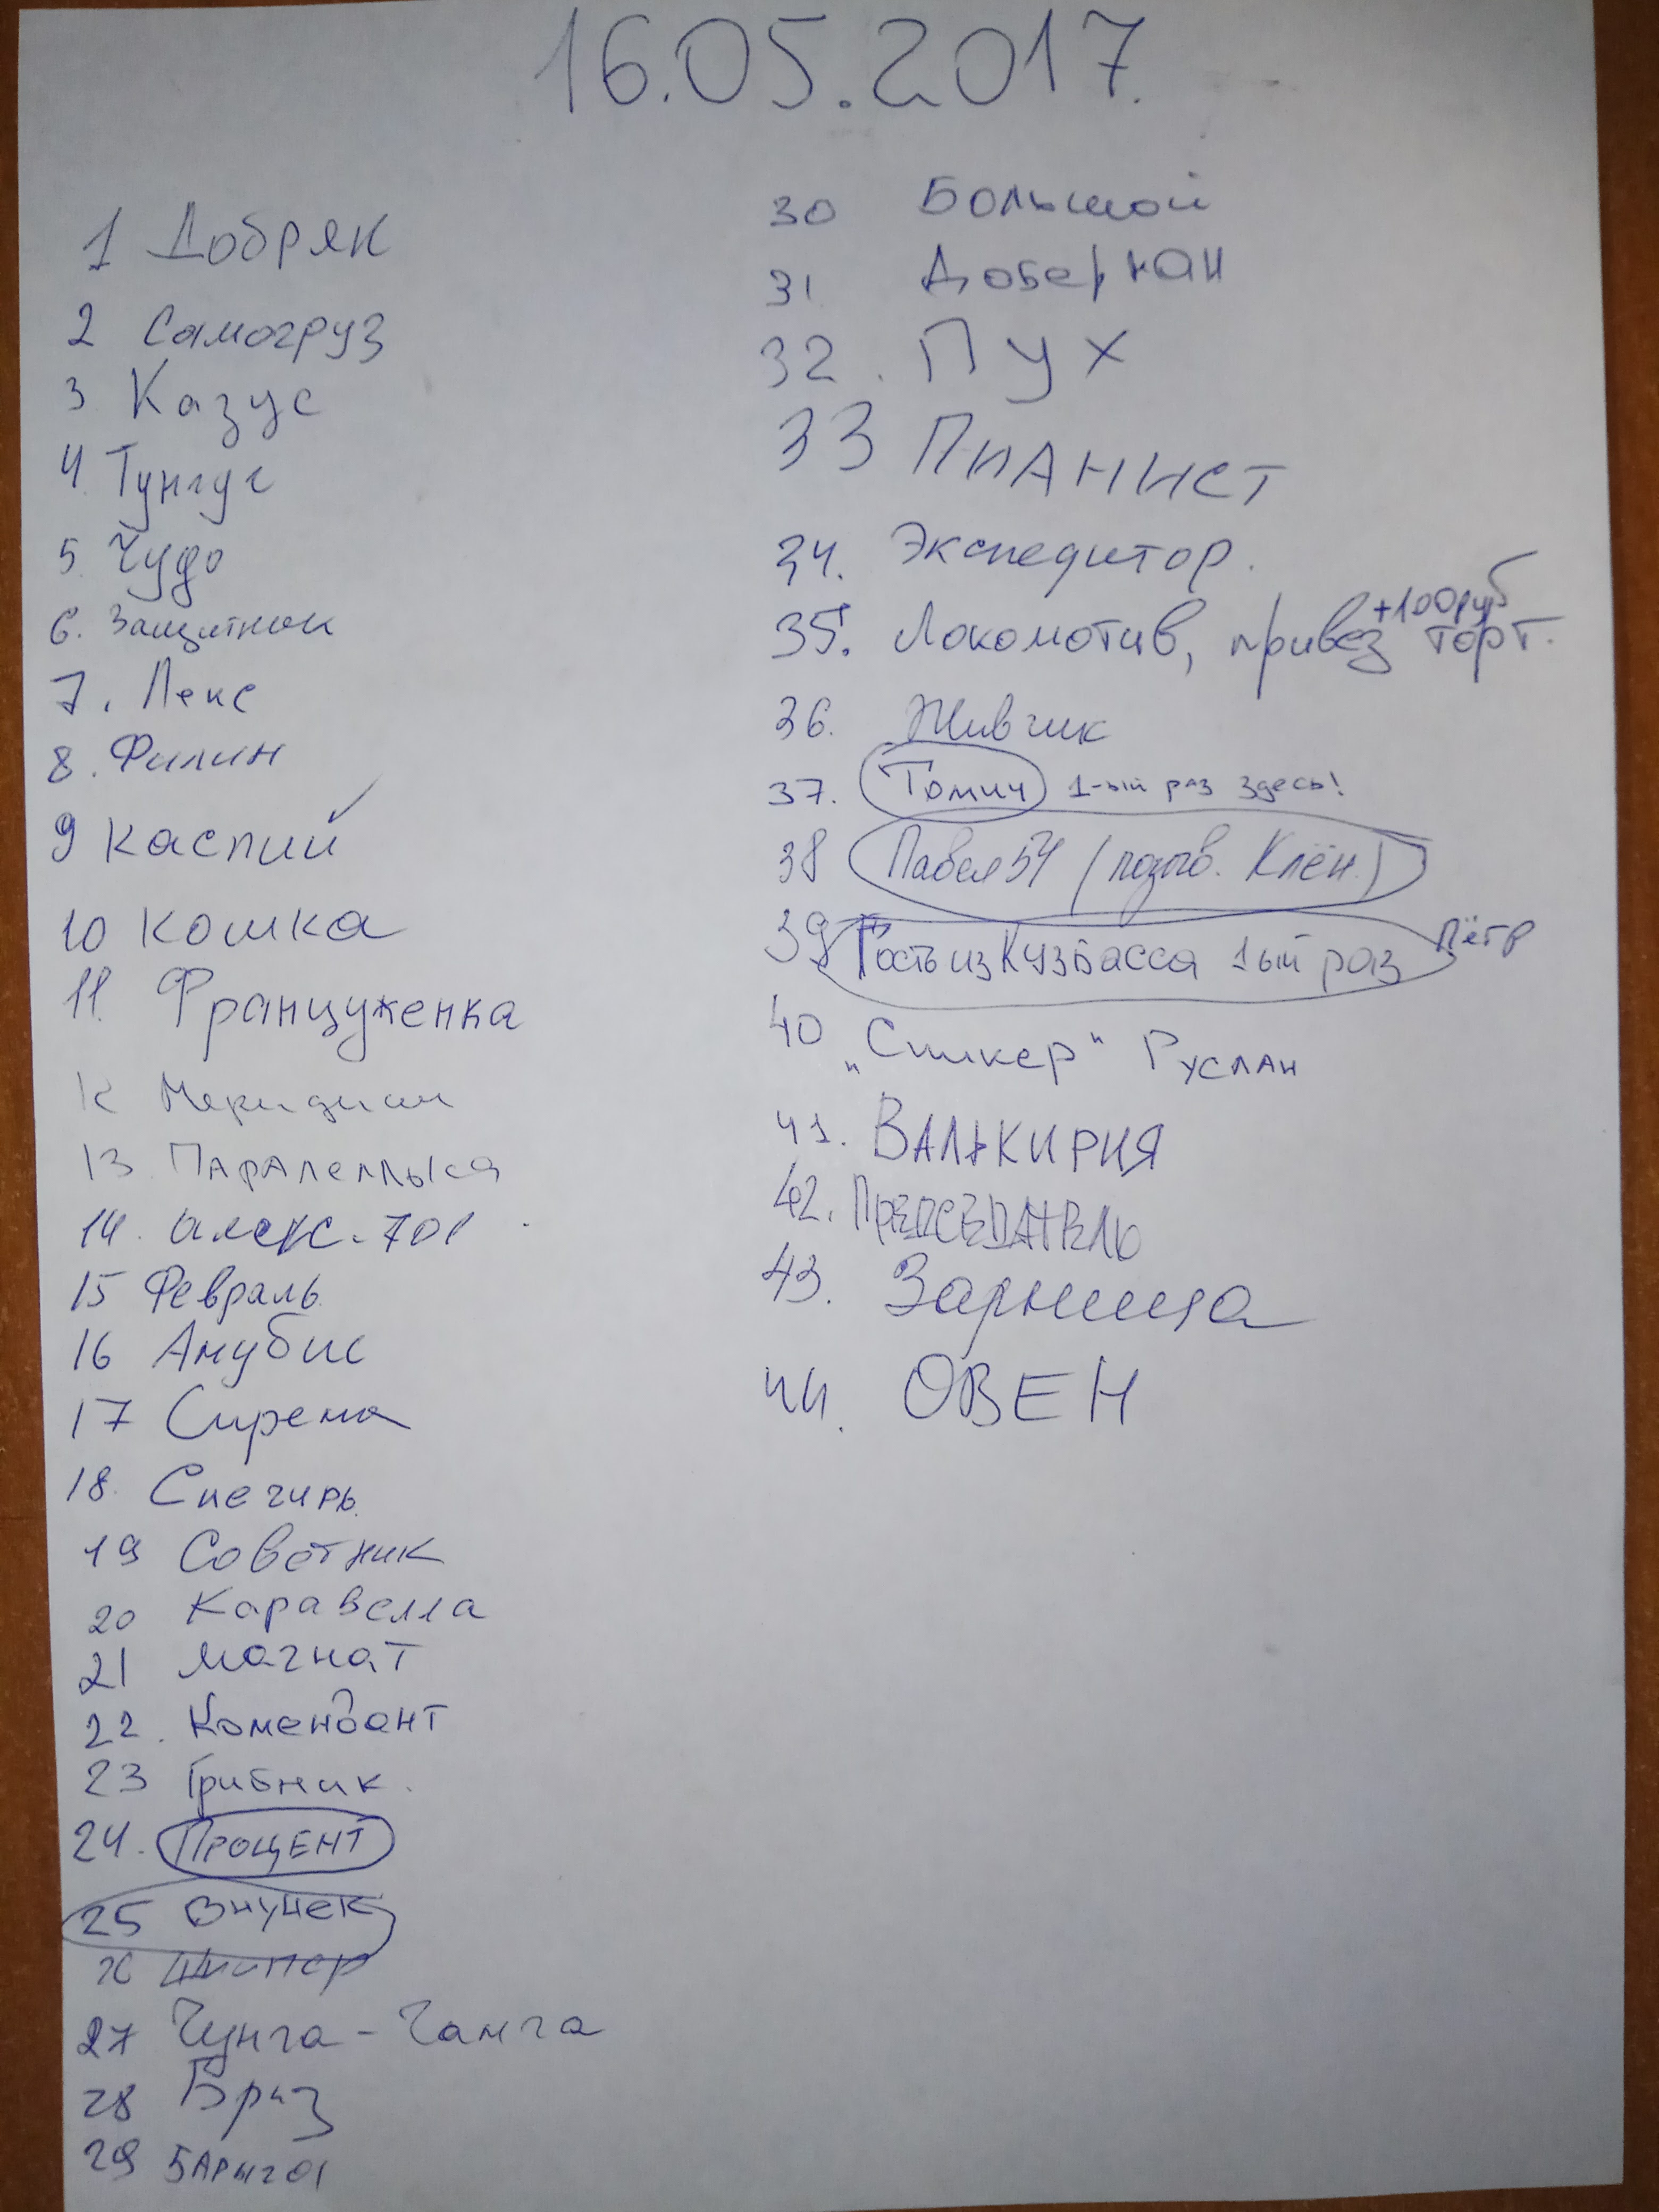 16.05.2017.
1 Добряк
2 Самогруз
3 Казус
4 Тунгус
5 Чудо
6. Защитник
7. Лекс
8. Филин
9 Каспий
10 Кошка
11. Француженка
12 Меридиан
13 ПАРАЛЕЛЛЬКА
14. алекс-701
15 Февраль
16 Анубис
17 Сирена
18. Снегирь
19 Советник
20 Каравелла
21 Магнат
22. Комендант
23 Грибник.
24. ПРОЦЕНТ
25 Внучек
26 Шкипер
27 Чунга-Чанга
28 Бриз
29 БАРЫГА
30 Большой
31 Доберман
32. Пух
33 ПИАНИСТ
34. Экспедитор.
35. Локомотив, привёз торт.
+100руб
36. Живчик
37. Томич 1-ый раз здесь!
38 Павел 54 (позыв. Клён.)
39 Гость из Кузбасса 1ый раз Пётр
40 „Спикер" Руслан
41. ВАЛЬКИРИЯ
42. ПРЕДСЕДАТЕЛЬ
43. Зарница
44. ОВЕН